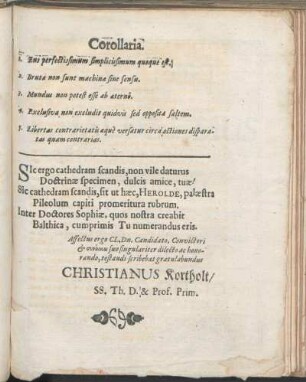 Corollaria.
1. Ens perfectissimum simplicissimum quoque est.
2. Bruta non sunt machinæ sine sensu.
3. Mundus non potest esse ab æterno.
4. Exclusiva non excludit quidvis sed opposita saltem.
5. Libertas contrarietatis æquè versatur circa actiones dispara-
tas quam contrarias.
SIc ergo cathedram scandis, non vile daturus
Doctrinæ specimen, dulcis amice, tuæ/
Sic cathedram scandis, sit ut hæc, HEROLDE, palæstra
Pileolum capiti promeritura rubrum.
Inter Doctores Sophiæ, quos nostra creabit
Balthica, cumprimis Tu numerandus eris.
Affectus ergo CL. Dn. Candidato, Convictori
& suo singulariter dilecto ac hono-
rando, testandi scribebat gratulabundus
CHRISTIANUS Kortholt/
SS. Th. D. & Prof. Prim.